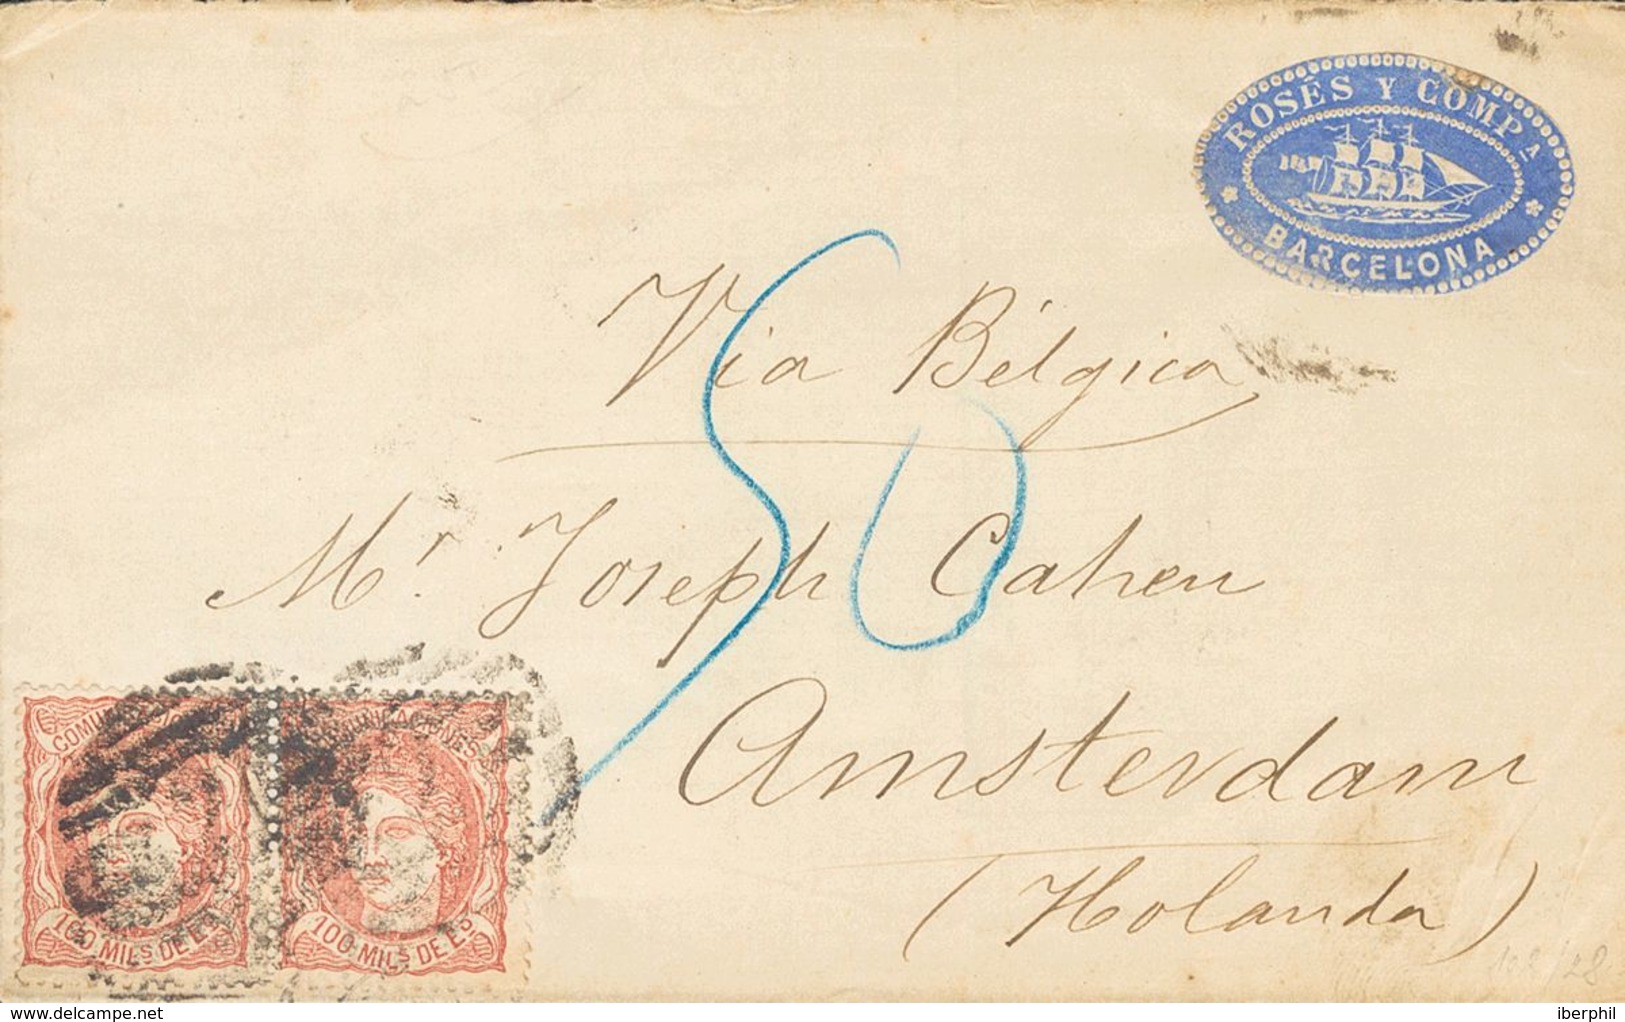 ROSÉS Y COMPª
BARCELONA
Via Bélgica
50
Mr. Joseph Cahen
Amsterdam
(Holanda)
COMUNICACIONES
100 MILS DE Eo
100 MILS DE Eo
delcampe.net
iberphil